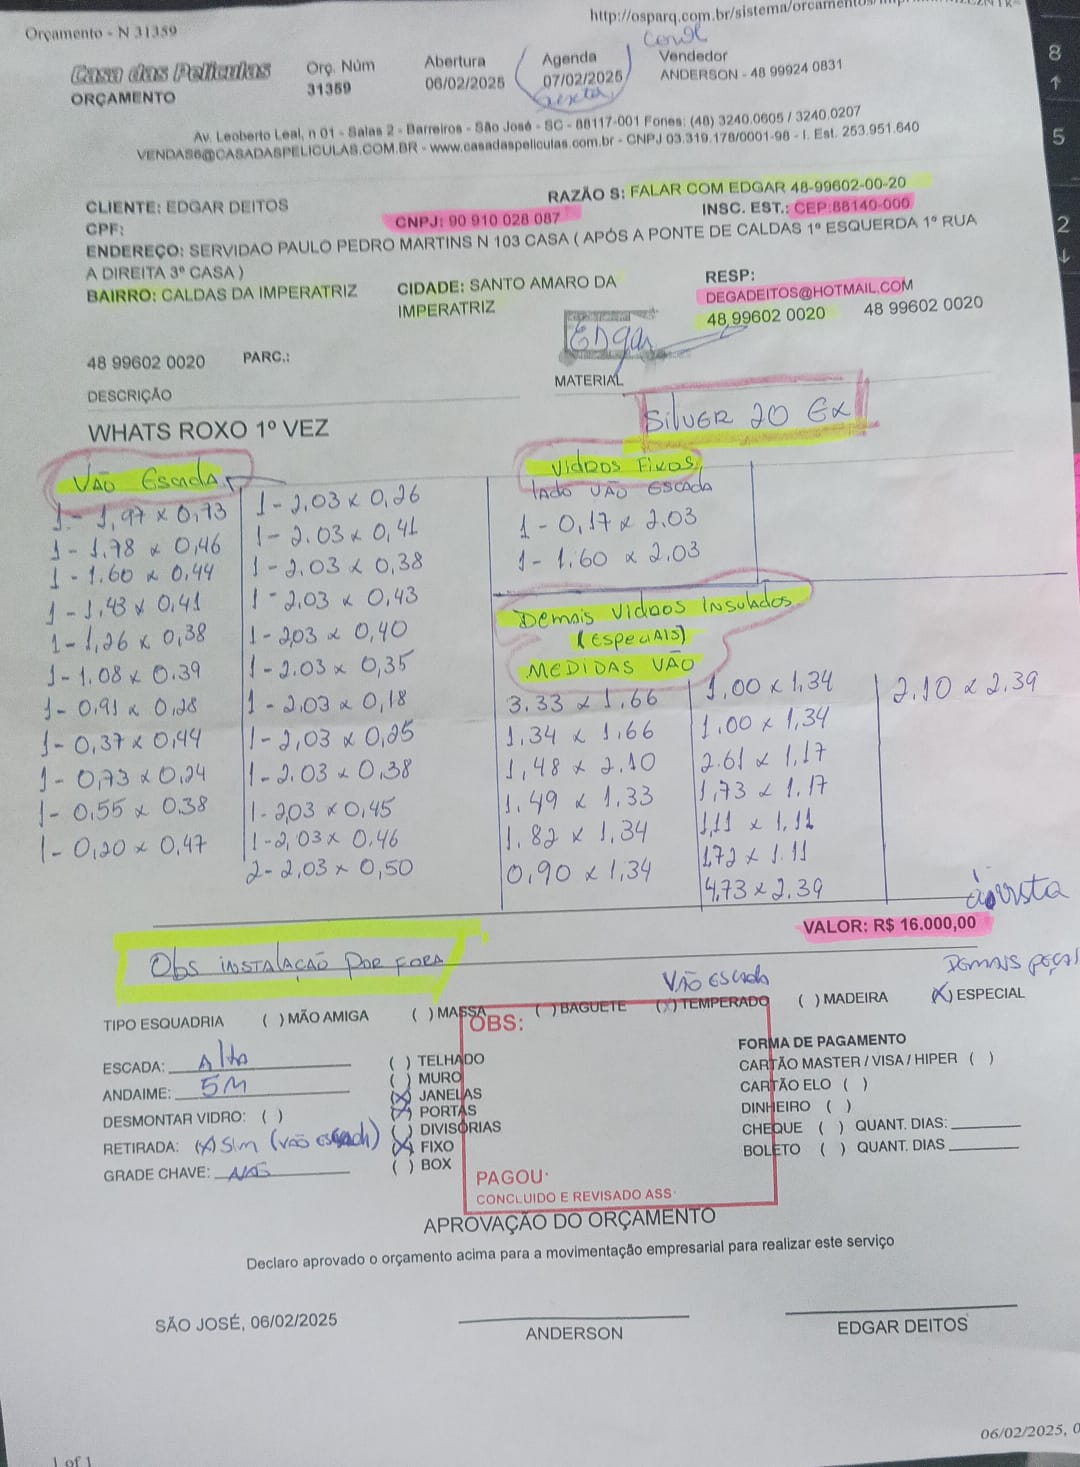 Orçamento - N 31359
http://osparq.com.br/sistema/orcamentos/
Casa das Películas
ORÇAMENTO
Orç. Núm
31359
Abertura
06/02/2025
Agenda
07/02/2025
Sexta
Vendedor
ANDERSON - 48 99924 0831
Av. Leoberto Leal, n 01 - Salas 2 - Barreiros - São José - SC - 88117-001 Fones: (48) 3240.0605 / 3240.0207
VENDAS6@CASADASPELICULAS.COM.BR - www.casadaspeliculas.com.br - CNPJ 03.319.178/0001-98 - I. Est. 253.951.640
CLIENTE: EDGAR DEITOS
RAZÃO S: FALAR COM EDGAR 48-99602-00-20
CPF:
CNPJ: 90 910 028 087
INSC. EST.: CEP:88140-000
ENDEREÇO: SERVIDAO PAULO PEDRO MARTINS N 103 CASA ( APÓS A PONTE DE CALDAS 1º ESQUERDA 1º RUA
A DIREITA 3º CASA )
BAIRRO: CALDAS DA IMPERATRIZ
CIDADE: SANTO AMARO DA
IMPERATRIZ
RESP:
DEGADEITOS@HOTMAIL.COM
48 99602 0020 48 99602 0020
EDgar
48 99602 0020 PARC.:
DESCRIÇÃO
MATERIAL
WHATS ROXO 1º VEZ
SilVER 20 Ex
VÃO Escada
1 - 1,97 x 0,73
1 - 1,78 x 0,46
1 - 1.60 x 0,44
1 - 1,43 x 0,41
1 - 1,26 x 0,38
1 - 1.08 x 0.39
1 - 0,91 x 0,28
1 - 0,37 x 0,44
1 - 0,73 x 0,24
1 - 0,55 x 0.38
1 - 0,20 x 0,47
1 - 2,03 x 0,26
1 - 2.03 x 0,41
1 - 2.03 x 0,38
1 - 2,03 x 0,43
1 - 2,03 x 0,40
1 - 2.03 x 0,35
1 - 2,03 x 0,18
1 - 2,03 x 0,25
1 - 2.03 x 0,38
1 - 2,03 x 0,45
1 - 2,03 x 0.46
2 - 2,03 x 0,50
Vidros Fixos
lado VÃO ESCADA
1 - 0,17 x 2.03
1 - 1.60 x 2.03
Demais Vidros Insulados
(especiais)
MEDIDAS VÃO
3.33 x 1.66
1,34 x 1.66
1,48 x 2.10
1.49 x 1.33
1.82 x 1,34
0,90 x 1,34
1.00 x 1,34
1.00 x 1,34
2.61 x 1,17
1,73 x 1.17
1,11 x 1.11
1,72 x 1.11
4,73 x 2.39
2.10 x 2.39
VALOR: R$ 16.000,00
Obs INSTALAÇÃO POR FORA
VÃO ESCADA
DEMAIS PEÇAS
TIPO ESQUADRIA ( ) MÃO AMIGA ( ) MASSA ( ) BAGUETE (X) TEMPERADO ( ) MADEIRA (X) ESPECIAL
OBS:
ESCADA: Alta
ANDAIME: 5M
DESMONTAR VIDRO: ( )
RETIRADA: (X) Sim (VÃO Escada)
GRADE CHAVE: NÃO
( ) TELHADO
( ) MURO
(X) JANELAS
(X) PORTAS
( ) DIVISÓRIAS
(X) FIXO
( ) BOX
FORMA DE PAGAMENTO
CARTÃO MASTER / VISA / HIPER ( )
CARTÃO ELO ( )
DINHEIRO ( )
CHEQUE ( ) QUANT. DIAS:
BOLETO ( ) QUANT. DIAS
PAGOU:
CONCLUIDO E REVISADO ASS:
APROVAÇÃO DO ORÇAMENTO
Declaro aprovado o orçamento acima para a movimentação empresarial para realizar este serviço
SÃO JOSÉ, 06/02/2025
ANDERSON
EDGAR DEITOS
06/02/2025, 0
1 of 1
8
5
2